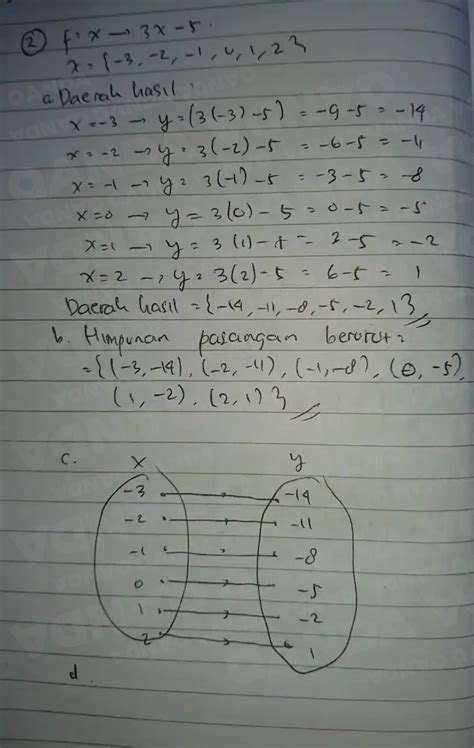 ② f: x → 3x - 5.
x = {-3, -2, -1, 0, 1, 2}
a. Daerah hasil:
x = -3 → y = (3(-3) - 5) = -9 - 5 = -14
x = -2 → y = 3(-2) - 5 = -6 - 5 = -11
x = -1 → y = 3(-1) - 5 = -3 - 5 = -8
x = 0 → y = 3(0) - 5 = 0 - 5 = -5
x = 1 → y = 3(1) - 5 = 3 - 5 = -2
x = 2 → y = 3(2) - 5 = 6 - 5 = 1
Daerah hasil = {-14, -11, -8, -5, -2, 1}
b. Himpunan pasangan berurut =
= {(-3, -14), (-2, -11), (-1, -8), (0, -5),
(1, -2), (2, 1)}
c. x y
-3 -14
-2 -11
-1 -8
0 -5
1 -2
2 1
d.